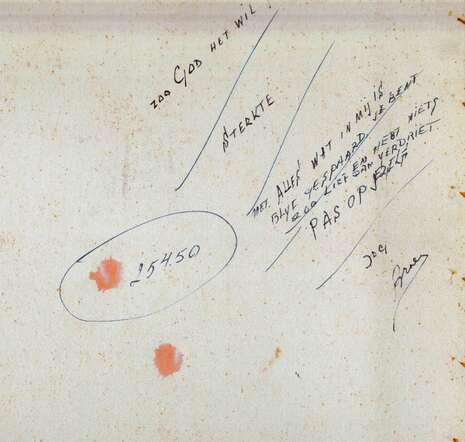 ZOO GOD HET WIL!
STERKTE
MET ALLES WAT IN MIJ IS
BLYF GESPAARD JE BENT
ZOO LIEF EN HEBT NIETS
DAN VERDRIET.
PAS OP JEZELF
254.50